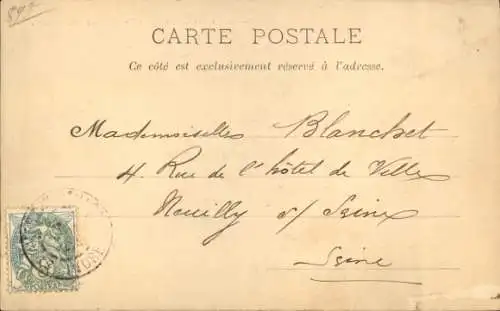 CARTE POSTALE
Ce côté est exclusivement réservé à l'adresse.
Mademoiselles Blanchet
4. Rue de l'hôtel de Ville
Neuilly s/ Seine
Seine